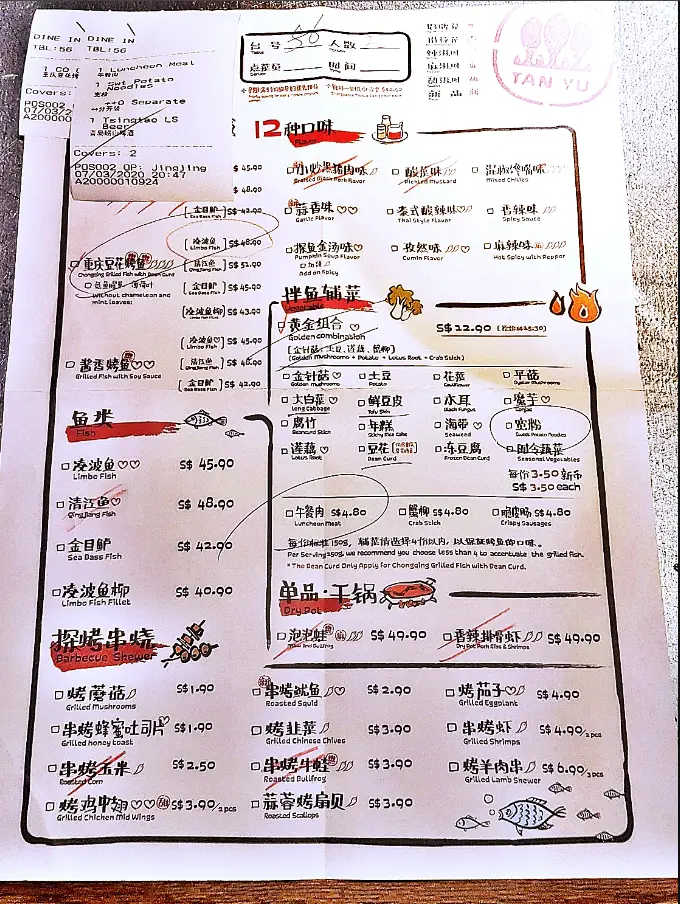 DINE IN DINE IN
TBL:56 TBL:56
1 Luncheon Meat
午餐肉
1 Swt Potato
Noodles
++0 Separate
++分开装
1 Tsingtao LS
Beer
Covers:
Covers: 2
POS002
POS002 OP: Jingjing
07/03/2020 20:47
A20000010924
台号 50 人数
点菜员 时间
TAN YU
12种口味
Flavor
小炒黑猪肉味
Braised Black Pork Flavor
酸菜味
Pickled Mustard
混椒馋嘴味
Mixed Chilies
蒜香味
Garlic Flavor
泰式酸辣味
Thai Style Flavor
香辣味
Spicy Sauce
探鱼金汤味
Pumpkin Soup Flavor
加辣
Add on Spicy
孜然味
Cumin Flavor
麻辣味
Hot Spicy with Pepper
S$ 45.90
S$ 48.90
金目鲈 S$ 42.90
Sea Bass Fish
凌波鱼 S$ 48.90
Limbo Fish
重庆豆花烤鱼
Chongqing Grilled Fish with Bean Curd
Without chameleon and
mint leaves:
清江鱼 S$ 52.90
Qingjiang Fish
金目鲈 S$ 45.90
Sea Bass Fish
凌波鱼柳 S$ 43.90
凌波鱼 S$ 45.90
Limbo Fish
酱香烤鱼
Grilled Fish with Soy Sauce
清江鱼 S$ 48.90
Qingjiang Fish
金目鲈 S$ 42.90
Sea Bass Fish
拌鱼辅菜
Vegetable
黄金组合 S$ 12.90
Golden combination
[金针菇、土豆、莲藕、蟹柳]
(Golden Mushrooms + Potato + Lotus Root + Crab Stick)
金针菇
Golden mushrooms
土豆
Potato
花菜
Cauliflower
平菇
Oyster Mushrooms
大白菜
Long Cabbage
鲜豆皮
Tofu Skin
木耳
Black Fungus
魔芋
Konjac
腐竹
Beancurd Stick
年糕
Sticky Rice Cake
海带
Seaweed
宽粉
Sweet Potato Noodles
莲藕
Lotus Root
豆花
Bean Curd
冻豆腐
Frozen Bean Curd
时令蔬菜
Seasonal Vegetables
每份 3.50 新币
S$ 3.50 each
午餐肉 S$4.80
Luncheon Meat
蟹柳 S$4.80
Crab Stick
脆皮肠 S$4.80
Crispy Sausages
每份标准150g, 辅菜请选择4份以内, 以保证烤鱼的口味。
Per Serving 150g, we recommend you choose less than 4 to accentuate the grilled fish.
* The Bean Curd Only Apply for Chongqing Grilled Fish with Bean Curd.
鱼类
Fish
凌波鱼 S$ 45.90
Limbo Fish
清江鱼 S$ 48.90
Qingjiang Fish
金目鲈 S$ 42.90
Sea Bass Fish
凌波鱼柳 S$ 40.90
Limbo Fish Fillet
单品·干锅
Dry Pot
泡泡蛙 S$ 49.90
香辣排骨虾 S$ 49.90
Dry Pot Pork Ribs & Shrimps
探烤串烧
Barbecue Skewer
烤蘑菇 S$ 1.90
Grilled Mushrooms
串烤鱿鱼 S$ 2.90
Roasted Squid
烤茄子 S$ 4.90
Grilled Eggplant
串烤蜂蜜吐司片 S$ 1.90
Grilled honey toast
烤韭菜 S$ 3.90
Grilled Chinese Chives
串烤虾 S$ 4.90/2pcs
Grilled Shrimps
串烤玉米 S$ 2.50
Roasted Corn
串烤牛蛙 S$ 3.90
Roasted Bullfrog
烤羊肉串 S$ 6.90/3pcs
Grilled Lamb Skewer
烤鸡中翅 S$ 3.90/2pcs
Grilled Chicken Mid Wings
蒜蓉烤扇贝 S$ 3.90
Roasted Scallops